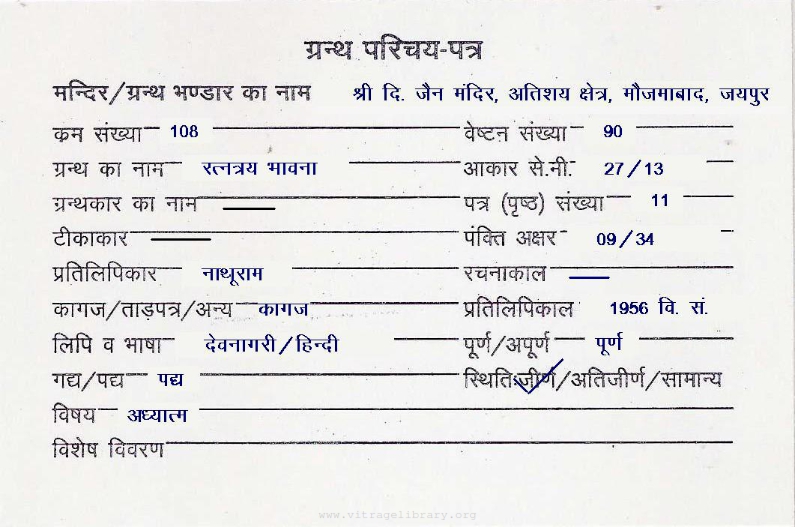 ग्रन्थ परिचय-पत्र
मन्दिर/ग्रन्थ भण्डार का नाम श्री दि. जैन मंदिर, अतिशय क्षेत्र, मौजमाबाद, जयपुर
कम संख्या 108 वेष्टन संख्या 90
ग्रन्थ का नाम रत्नत्रय भावना आकार से.मी. 27/13
ग्रन्थकार का नाम — पत्र (पृष्ठ) संख्या 11
टीकाकार — पंक्ति अक्षर 09/34
प्रतिलिपिकार नाथूराम रचनाकाल —
कागज/ताड़पत्र/अन्य कागज प्रतिलिपिकाल 1956 वि. सं.
लिपि व भाषा देवनागरी/हिन्दी पूर्ण/अपूर्ण पूर्ण
गद्य/पद्य पद्य स्थितिःजीर्ण/अतिजीर्ण/सामान्य
विषय अध्यात्म
विशेष विवरण
www.vitragelibrary.org